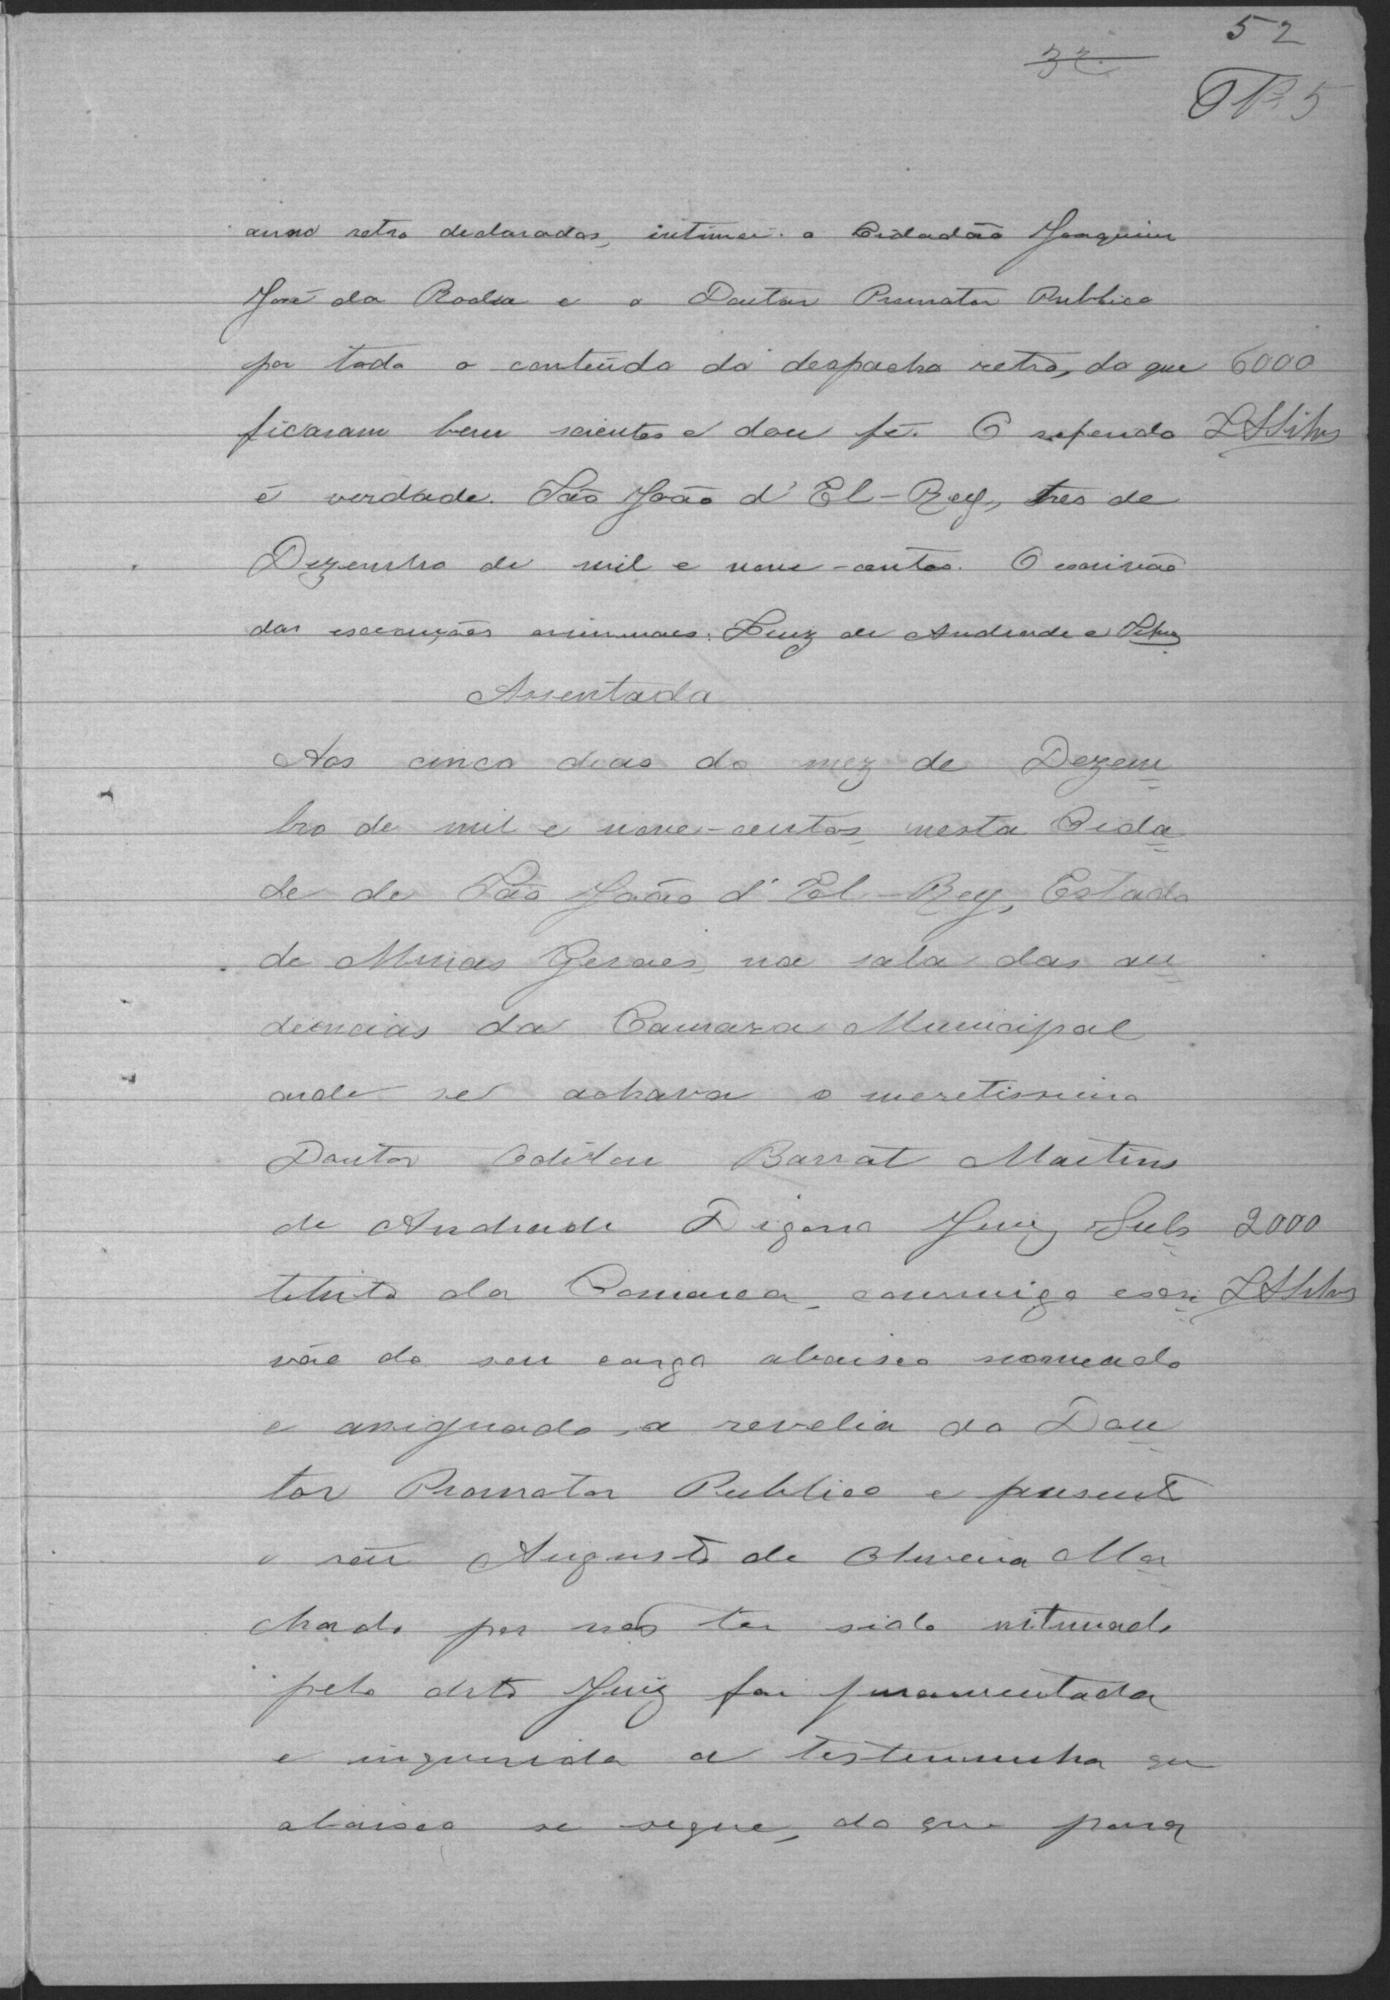 52
32
anno retro declarados, intimei o Cidadão Joaquim
José da Rocha e o Doutor Promotor Publico
por todo o conteúdo do despacho retro, do que 6000
ficaram bem scientes e dou fé. O referido LASilva
é verdade. São João d'El-Rey, tres de
Dezembro de mil e nove-centos. O escrivão
das execuções criminaes: Luiz de Andrade e Silva
Assentada
Aos cinco dias do mez de Dezem
bro de mil e nove-centos, nesta Cida
de de São João d'El-Rey, Estado
de Minas Geraes, na sala das au
diencias da Camara Municipal
onde se achava o meretissimo
Doutor Odilon Barrat Martins
de Andrade Digno Juiz Subs 2000
tituto da Comarca, commigo escri LASilva
vão do seu cargo abaixo nomeado
e assignado, a revelia do Dou
tor Promotor Publico e presente
o réu Augusto de Oliveira Ma
chado por nos ter sido intimado
pelo dito Juiz foi juramentada
e inquerida a testemunha que
abaixo se segue, do que para